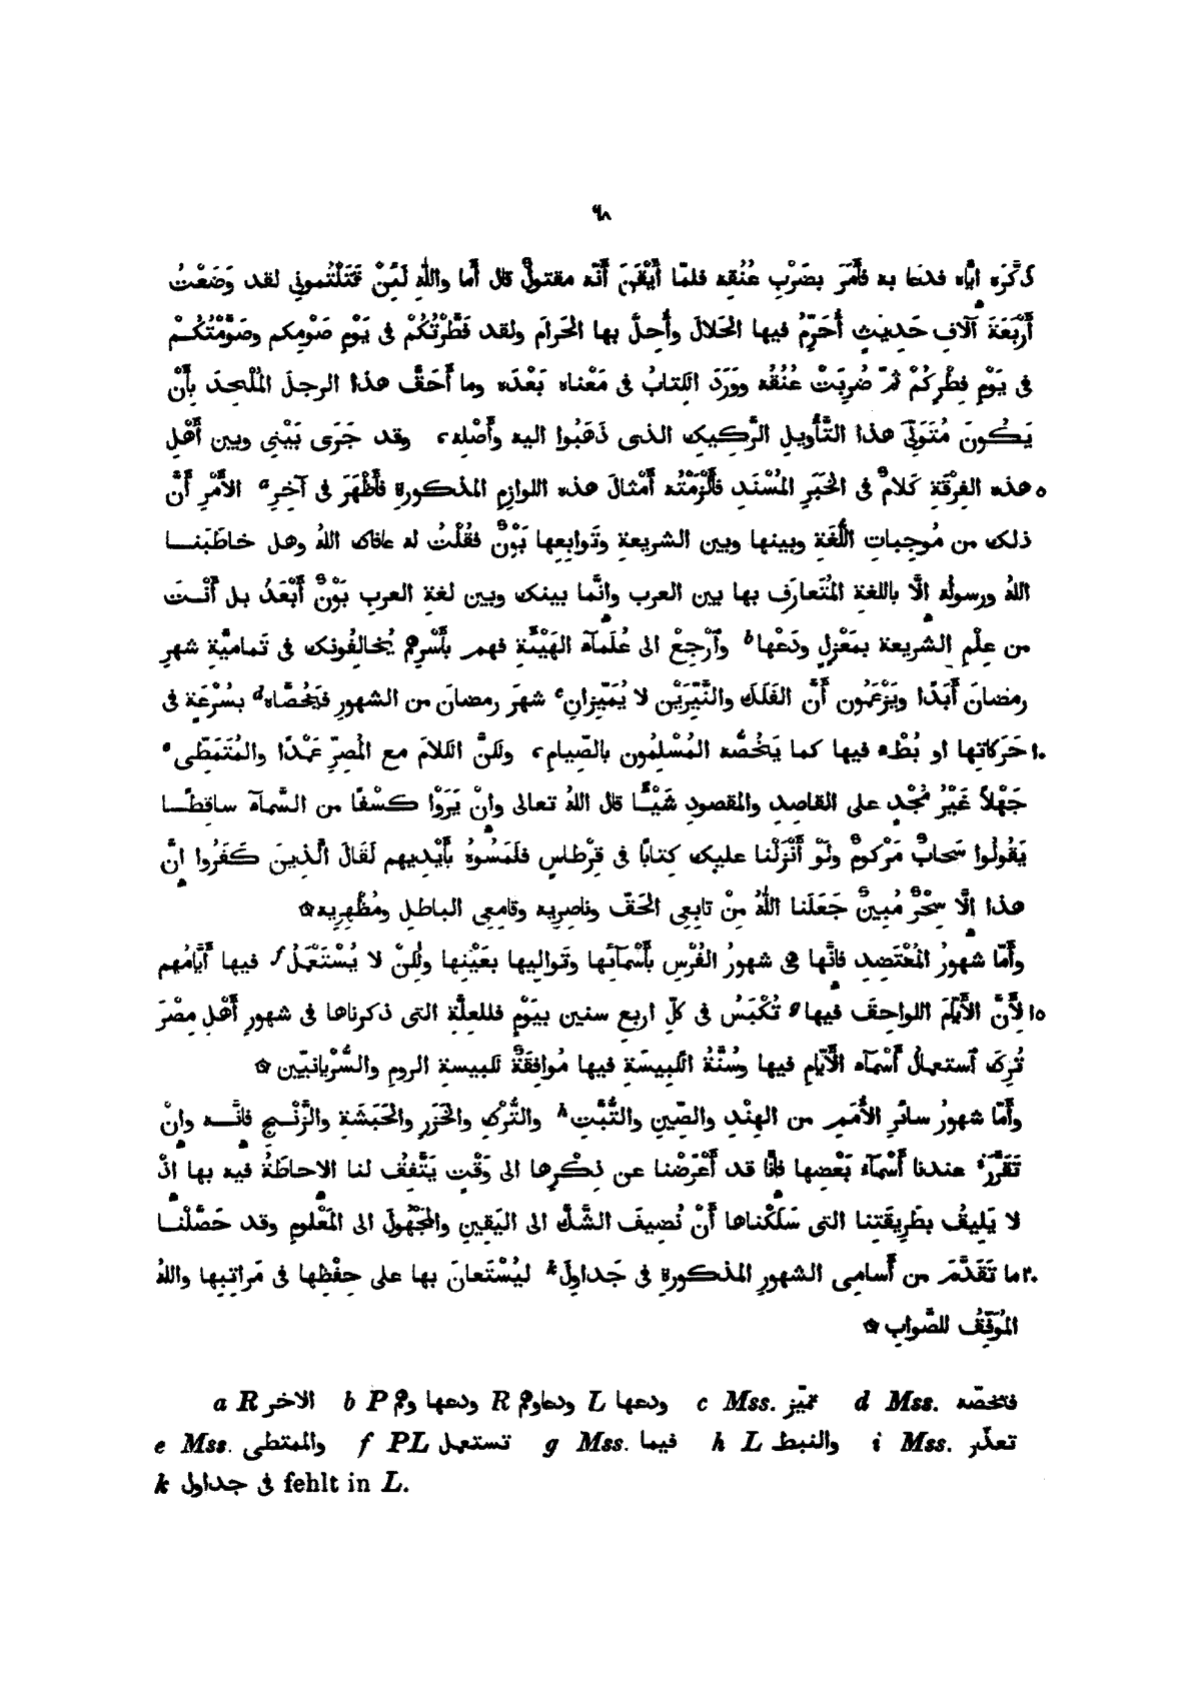 ٦٨
ذَكَّرَه ايَّاه فدعا به فأَمَرَ بضَرْبِ عُنُقه فلمّا أَيْقَنَ أَنّه مقتولٌ قال أَما واللهِ لَئِنْ قَتَلْتُمونى لقد وَضَعْتُ
أَرْبَعَةَ آلافِ حَدِيثٍ أُحَرِّمُ فيها الحَلالَ وأُحِلَّ بها الحَرامَ ولقد فَطَّرْتُكُمْ فى يَوْمِ صَوْمِكم وصَوَّمْتُكُمْ
فى يَوْمِ فِطْرِكُمْ ثُمّ ضُرِبَتْ عُنُقُه ووَرَدَ الكتابُ فى مَعْناه بَعْدَه وما أَحَقَّ هذا الرجلَ المُلْحِدَ بأَنْ
يَكُونَ مُتَوَلِّىَ هذا التَّأْويلِ الرَّكِيكِ الذى ذَهَبُوا اليه وأَصْلِه، وقد جَرَى بَيْنى وبين أَهْلِ
٥ هذه الفِرْقَةِ كَلامٌ فى الخَبَرِ المُسْنَدِ فأَلْزَمْتُه أَمْثالَ هذه اللوازِمِ المذكورةِ فأَظْهَرَ فى آخِرِ a الأَمْرِ أَنَّ
ذلك من مُوجِباتِ اللُّغَةِ وبينها وبين الشريعةِ وتَوابِعِها بَوْنٌ فقُلْتُ له عافاك اللهُ وهل خاطَبَنا
اللهُ ورسولُه الَّا باللغةِ المُتَعارَفِ بها بين العرب وانَّما بينك وبين لغةِ العربِ بَوْنٌ أَبْعَدُ بل أَنْتَ
من عِلْمِ الشريعة بمَعْزِلٍ ودَعْها b وٱرْجِعْ الى عُلَمآءِ الهَيْئَةِ فهم بأَسْرِهِم يُخالِفُونك فى تَماميَّةِ شهرِ
رمضانَ أَبَدًا ويَزْعَمُون أَنَّ الفَلَكَ والنَّيِّرَيْن لا يُمَيِّزانِ c شهرَ رمضانَ من الشهورِ فيَخُصَّاه d بسُرْعَةٍ فى
١٠ حَرَكاتِها او بُطْءٍ فيها كما يَخُصُّه المُسْلِمُون بالصِّيامِ، ولكنَّ الكلامَ مع المُصِرِّ عَمْدًا والمُتَمَطِّى e
جَهْلاً غَيْرُ مُجْدٍ على القاصِدِ والمقصودِ شَيْئًا قال اللهُ تعالى وانْ يَرَوْا كِسْفًا من السَّمآءِ ساقِطًا
يَقُولُوا سَحابٌ مَرْكُومٌ ولَوْ أَنْزَلْنا عليك كِتابًا فى قِرْطاسٍ فلَمَسُوهُ بأَيْدِيهم لَقَالَ الَّذِينَ كَفَرُوا انْ
هذا الَّا سِحْرٌ مُبِينٌ جَعَلَنا اللهُ مِنْ تابِعِى الحَقّ وناصِرِيه وقامِعِى الباطلِ ومُظْهِرِيه ✩
وأَمّا شهورُ المُعْتَضِدِ فانَّها هى شهورُ الفُرْسِ بأَسْمآئِها وتَوالِيها بعَيْنِها ولكِنْ لا يُسْتَعْمَلُ f فيها أَيَّامُهم
١٥ لأَنَّ الأَيَّامَ اللواحِقَ فيها g تُكْبَسُ فى كلّ اربعِ سنين بيَوْمٍ فللعِلَّةِ التى ذكرناها فى شهورِ أَهْلِ مِصْرَ
تُرِكَ ٱستعمالُ أَسْمآءِ الأَيّامِ فيها وسُنَّةُ الكَبِيسَةِ فيها مُوافِقَةٌ لكبيسةِ الرومِ والسُّرْيانيّين ✩
وأَمّا شهورُ سائرِ الأُمَمِ من الهِنْدِ والصِّينِ والتُّبَّتِ h والتُّرْكِ والخَزَرِ والحَبَشَةِ والزَّنْجِ فانَّه وانْ
تَقَرَّرَ i عندنا أَسْمآءُ بَعْضِها فانَّا قد أَعْرَضْنا عن ذِكْرِها الى وَقْتٍ يَتَّفِقُ لنا الاحاطَةُ فيه بها اذْ
لا يَلِيقُ بطَرِيقَتِنا التى سَلَكْناها أَنْ نُضِيفَ الشَّكَّ الى اليَقِينِ والمَجْهُولَ الى المَعْلُومِ وقد حَصَّلْنا
٢٠ ما تَقَدَّمَ من أَسامِى الشهورِ المذكورةِ فى جَداوِلَ k ليُسْتَعانَ بها على حِفْظِها فى مَراتِبِها واللهُ
المُوَفِّقُ للصَّوابِ ✩
a R الاخر b P ودعها وهم R ودعاوهم L ودعها c Mss. تميّز d Mss. فتخصّه
e Mss. والممتطى f PL تستعمل g Mss. فيما h L والنبط i Mss. تعذّر
k فى جداول fehlt in L.